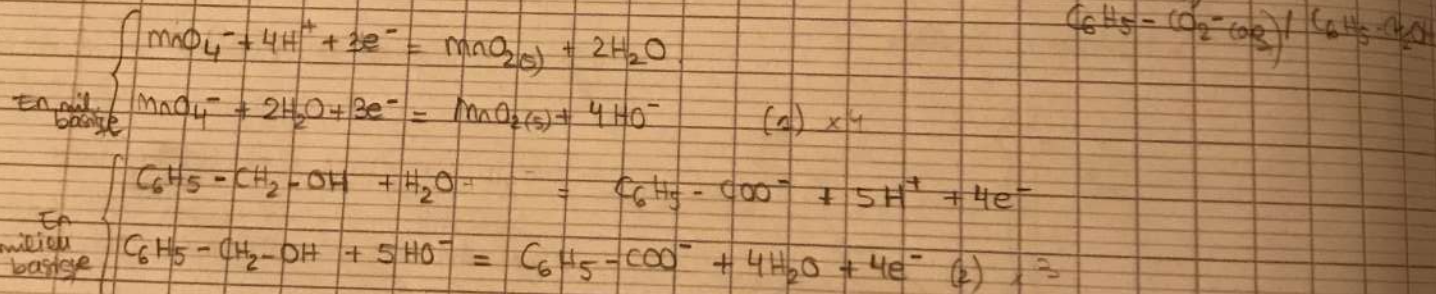 C₆H₅ - CO₂⁻(aq) / C₆H₅-CH₂OH
MnO₄⁻ + 4H⁺ + 3e⁻ = MnO₂(s) + 2H₂O
En mil. basique MnO₄⁻ + 2H₂O + 3e⁻ = MnO₂(s) + 4HO⁻ (1) ×4
C₆H₅ - CH₂ - OH + H₂O = C₆H₅ - COO⁻ + 5H⁺ + 4e⁻
En milieu basique C₆H₅ - CH₂ - OH + 5HO⁻ = C₆H₅ - COO⁻ + 4H₂O + 4e⁻ (2) ×3